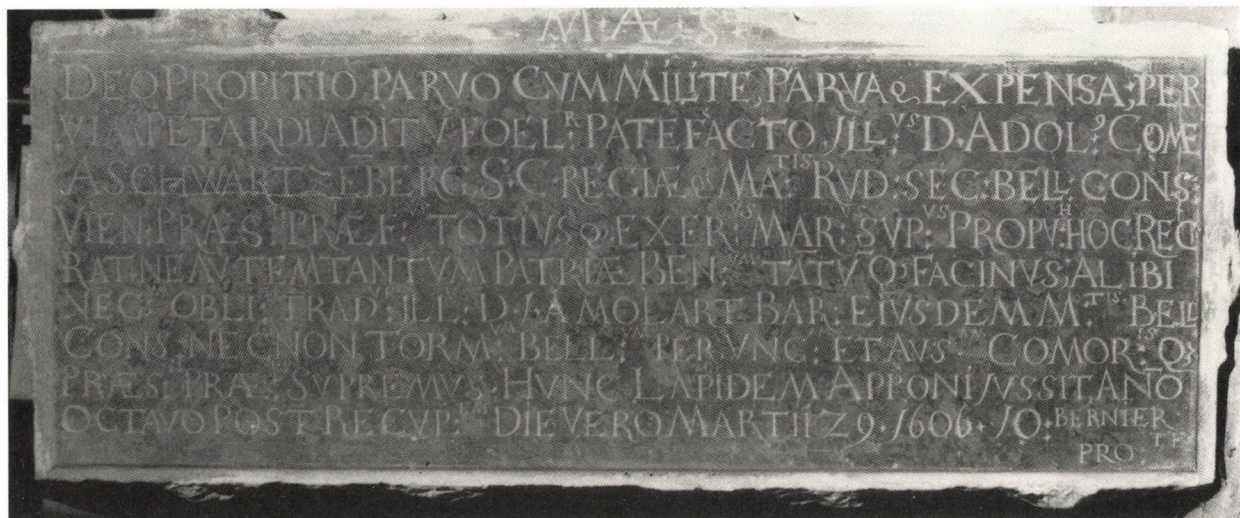 M·Æ·S
DEO PROPITIO PARVO CVM MILITE, PARVA & EXPENSA, PER
VIM PETARDI ADITV FOEL:R PATEFACTO, JLL:VS D·ADOL:9 COME
A SCHWARTZEBERG, S·C·REG·IA & MA:TIS RVD·SEC·BELL·CONS:
VIEN·PRÆS: PRÆF: TOTIVS EXER: MAR: SVP:VS PROPV:H HOC REC
RAT·NE AVTEM TANTVM PATRIÆ BEN: TATV Q3 FACINVS, ALIBI
NEG: OBLI: TRAD: JLL: D·IA MOLART BAR: EIVSDEM M:TIS BELL
CONS NECNON TORM: BELL: PER VNG: ET AVS COMOR: Qs
PRÆS PRÆ: SVPREMVS HVNC LAPIDEM APPONI JVSSIT ANO
OCTAVO POST RECVP: DIE VERO MARTII 29·1606·JO: BERNIER
PRO:TE